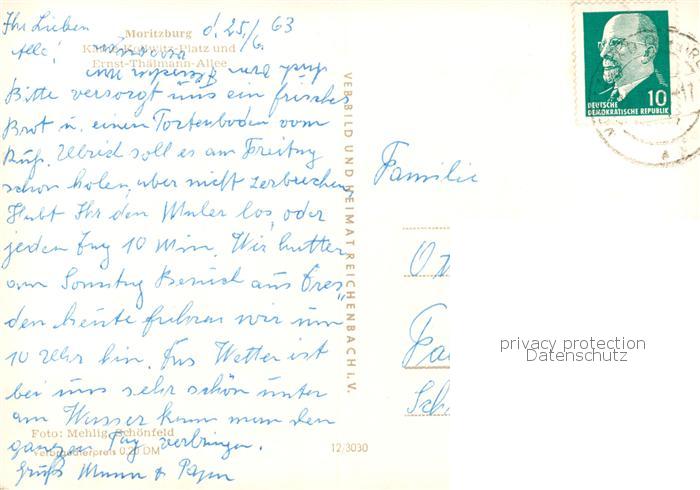 Ihr Lieben d. 25./6. 63
Alle!
Moritzburg
Käthe-Kollwitz-Platz und
Ernst-Thälmann-Allee
Bitte versorgt uns ein frisches
Brot u. einen Tortenboden vom
soll es am Freitag
schon holen, aber nicht zerbrechen
Habt Ihr den Maler los, oder
jeden Tag 10 Min. Wir hatten
am Sonntag Besuch aus Dres-
den heute fahren wir um
10 Uhr hin. Das Wetter ist
bei uns sehr schön unter
am Wasser kann man den
ganzen Tag verbringen.
Gruß Mama + Papa
Foto: Mehlig, Schönfeld
Verbraucherpreis 0,20 DM
12/3030
VEB BILD UND HEIMAT REICHENBACH I. V.
10
DEUTSCHE
DEMOKRATISCHE REPUBLIK
Familie
privacy protection
Datenschutz